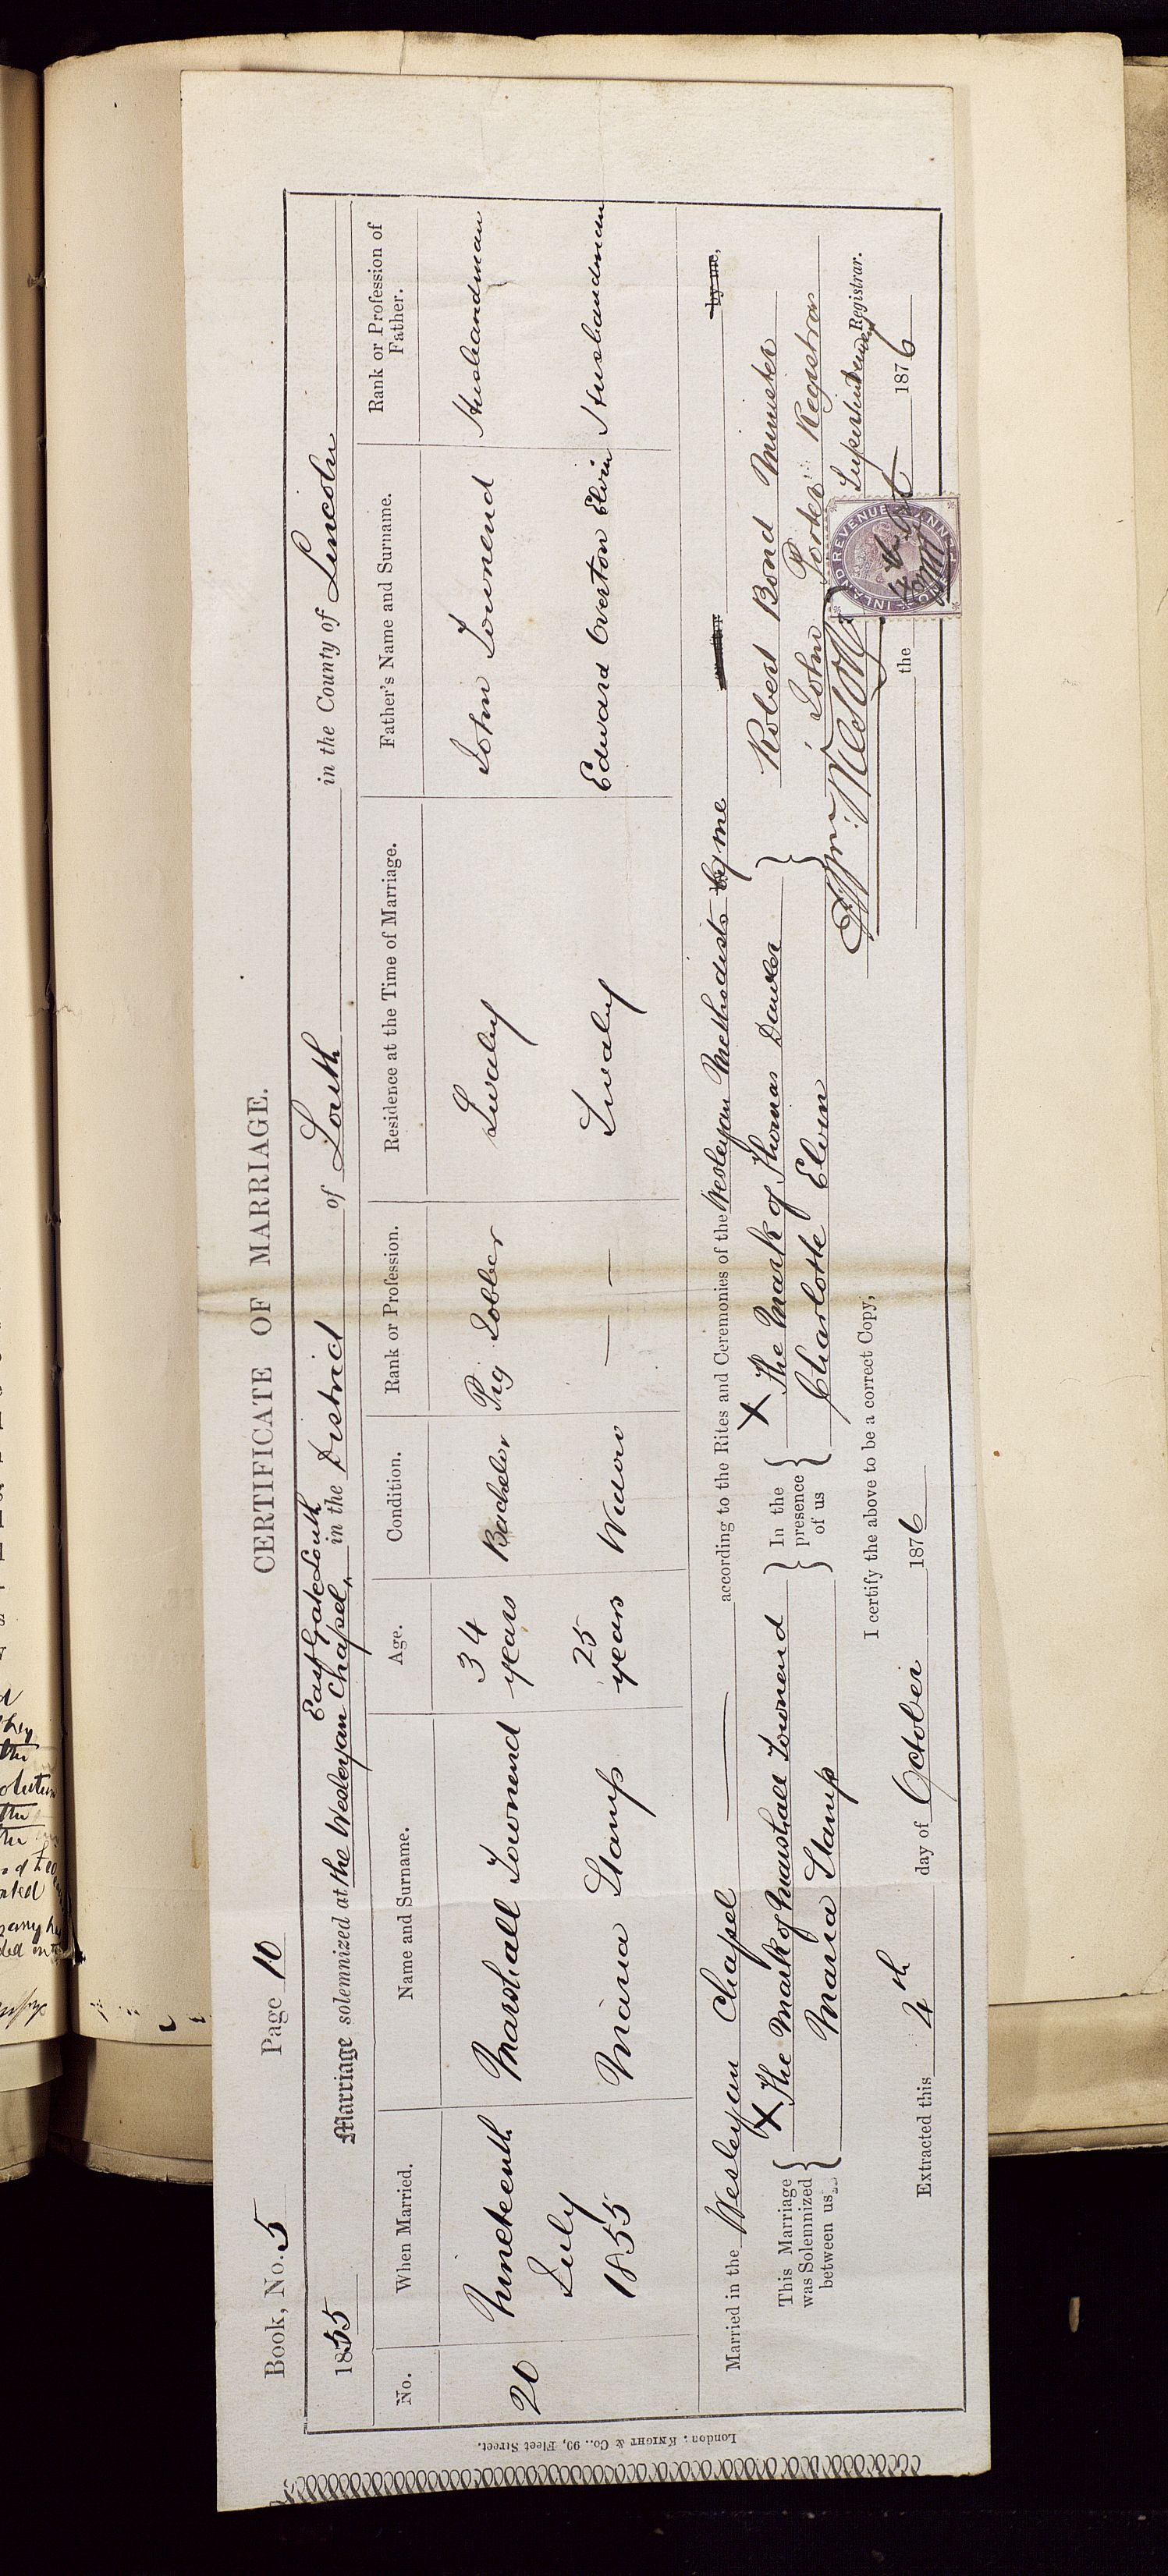 Book, No. 5 Page 10 CERTIFICATE OF MARRIAGE.
East Gate Louth
1855 Marriage solemnized at the Wesleyan Chapel, in the District of Louth in the County of Lincoln
No. When Married. Name and Surname. Age. Condition. Rank or Profession. Residence at the Time of Marriage. Father's Name and Surname. Rank or Profession of Father.
20 Nineteenth July 1855 Marshall Townend 34 years Bachelor Pig Jobber Swaby John Townend Husbandman
Maria Stamp 25 years Widow — — Swaby Edward Overton Elvin Husbandman
Married in the Wesleyan Chapel according to the Rites and Ceremonies of the Wesleyan Methodists by me by me,
This Marriage was Solemnized between us
X The Mark of Marshall Townend
Maria Stamp
In the presence of us
X The Mark of Thomas Dawber
Charlotte Elvin
Robert Bond Minister
John Porter Registrar
I certify the above to be a correct Copy,
Superintendent Registrar.
Extracted this 4th day of October 1876
the 1876
INLAND REVENUE
London; KNIGHT & Co., 90, Fleet Street.